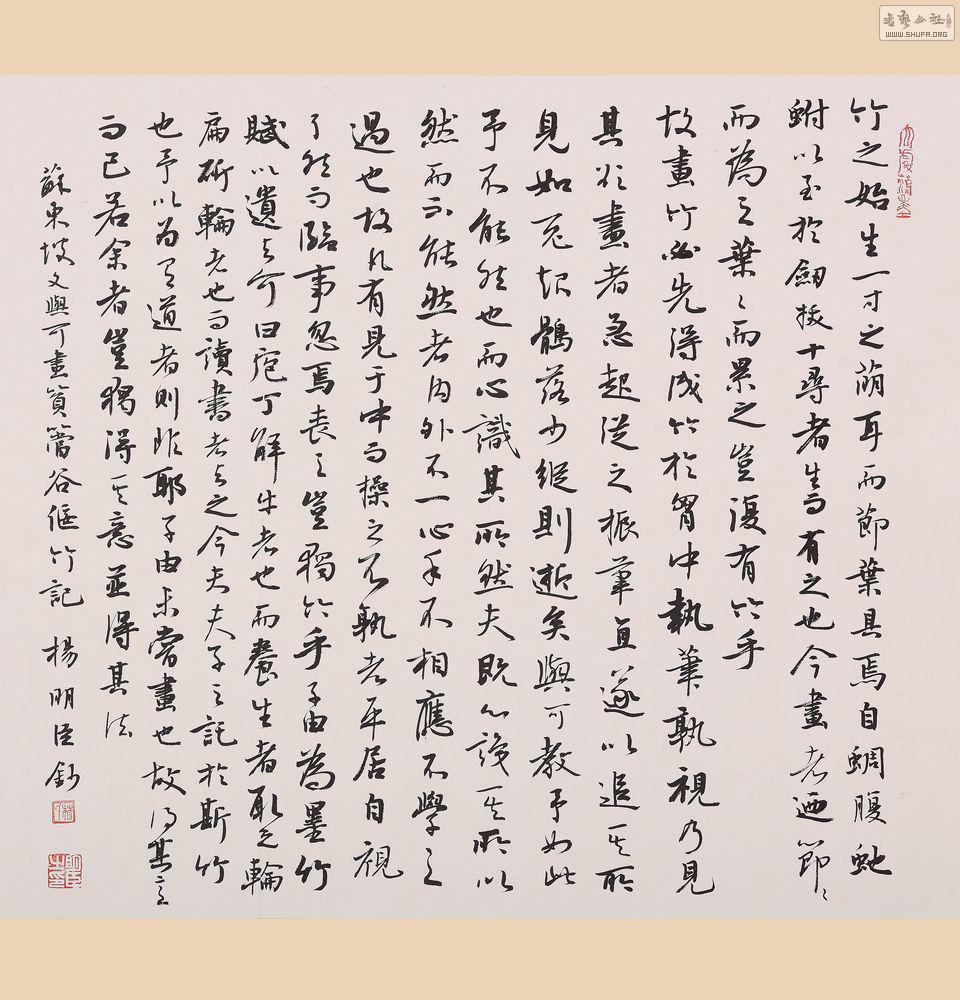 書藝公社
WWW.SHUFA.ORG
竹之始生一寸之萌耳而節葉具焉自蜩腹虵
蚹以至於劍拔十尋者生而有之也今畫者迺節〻
而為之葉〻而累之豈復有竹乎
故畫竹必先得成竹於胷中執筆孰視乃見
其欲畫者急起從之振筆直遂以追其所
見如兔起鶻落少縱則逝矣與可教予如此
予不能然也而心識其所然夫既心識其所以
然而不能然者内外不一心手不相應不學之
過也故凡有見于中而操之不孰者平居自視
了然而臨事忽焉喪之豈獨竹乎子由為墨竹
賦以遺與可曰庖丁解牛者也而養生者取之輪
扁斫輪者也而讀書者與之今夫夫子之託於斯竹
也予以為有道者則非耶子由未嘗畫也故得其意
而已若余者豈獨得其意並得其法
蘇東坡文與可畫篔簹谷偃竹記 楊明臣鈔